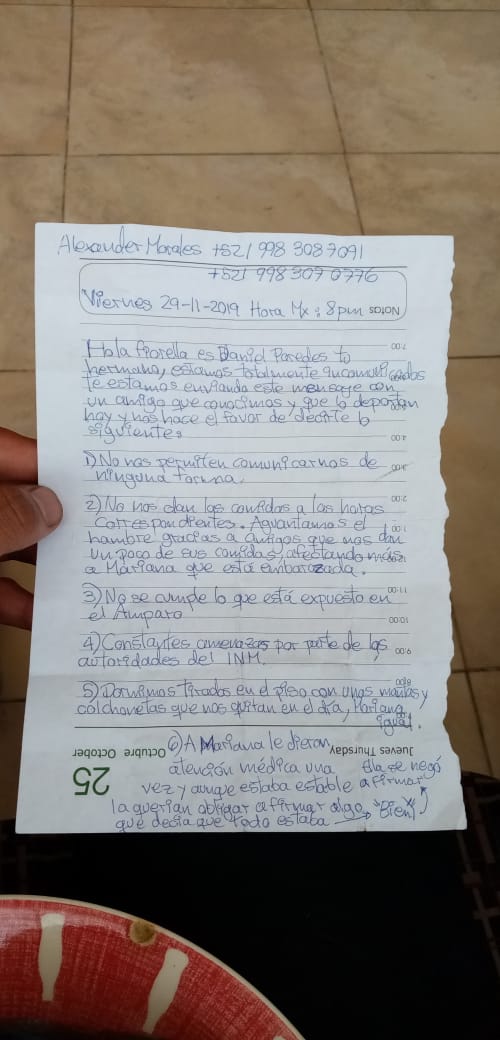 Alexander Morales +521 998 308 7091
+521 998 307 0776
Viernes 29-11-2019 Hora Mx: 8pm
Notas
Hola Fiorella es Daniel Paredes to
hermano, estamos totalmente incomunicados
Te estamos enviando este mensage con
un amigo que conocimos y que lo deportan
hoy y nos hace el favor de decirte lo
siguiente:
1) No nos permiten comunicarnos de
ninguna forma.
2) No nos dan las comidas a las horas
correspondientes. Aguantamos el
hambre gracias a amigos que nos dan
un poco de sus comidas, afectando más
a Mariana que está embarazada.
3) No se cumple lo que está expuesto en
el Amparo
4) Constantes amenazas por parte de las
autoridades del INM.
5) Dormimos tirados en el piso con unas mantas y
colchonetas que nos quitan en el día, Mariana
igual.
6) A Mariana le dieron
atención médica una
vez y aunque estaba estable
la querían obligar a firmar algo
que decía que todo estaba → "Bien"
Ella se negó
a firmar
25
Octubre October
Jueves Thursday
7:00
4:00
3:00
2:00
1:00
12:00
11:00
10:00
9:00
8:00